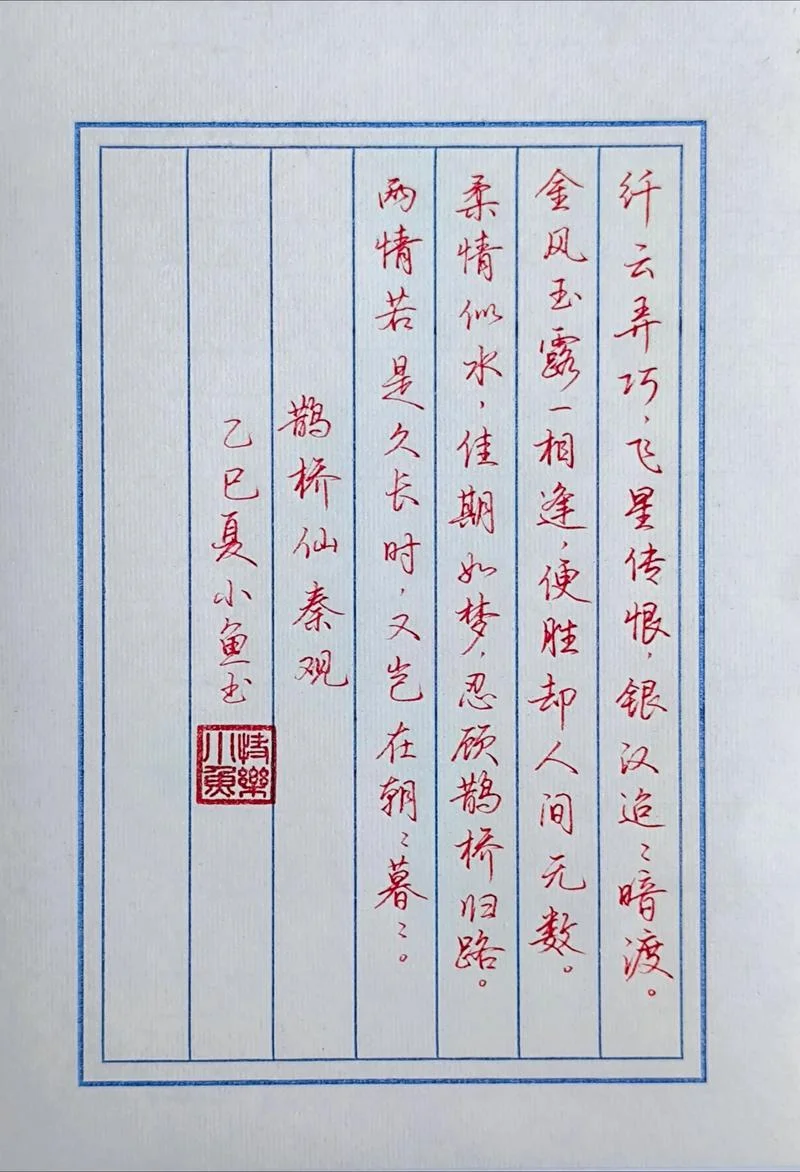 纤云弄巧，飞星传恨，银汉迢〻暗渡。
金风玉露一相逢，便胜却人间无数。
柔情似水，佳期如梦，忍顾鹊桥归路。
两情若是久长时，又岂在朝〻暮〻。
鹊桥仙秦观
乙巳夏小鱼书
快樂小魚